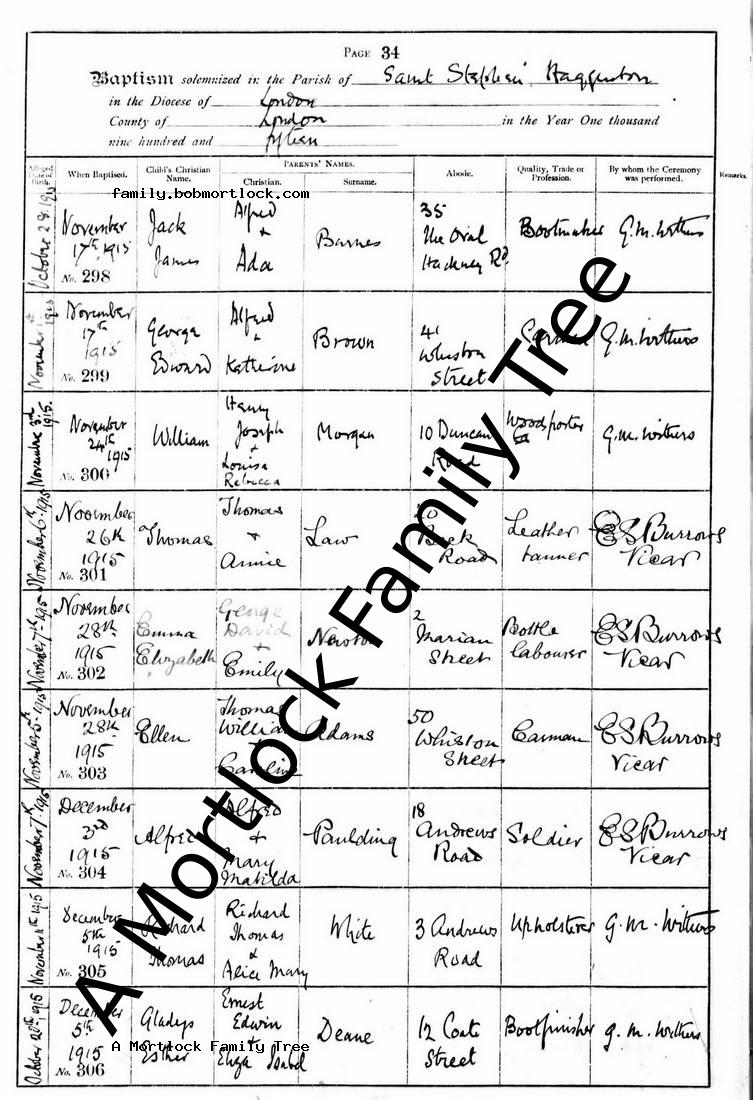 PAGE 34
Baptism solemnized in the Parish of Saint Stephen Haggerston
in the Diocese of London
County of London in the Year One thousand
nine hundred and fifteen
Alleged Date of Birth. When Baptised. Child's Christian Name. PARENTS' NAMES. Christian. Surname. Abode. Quality, Trade or Profession. By whom the Ceremony was performed. Remarks.
family.bobmortlock.com
October 28. November 17th 1915 No. 298 Jack James Alfred + Ada Barnes 35 The Oval Hackney Rd. Bootmaker G.M. Withers
November November 17th 1915 No. 299 George Edward Alfred + Katherine Brown 41 Whiston Street Carman G.M. Withers
November 3rd 1915. November 24th 1915 No. 300 William Henry Joseph + Louisa Rebecca Morgan 10 Duncan Road Woodsporter G.M. Withers
November 6th 1915 November 26th 1915 No. 301 Thomas Thomas + Annie Law Road Leather tanner E S Burrows Vicar
November 7th 1915 November 28th 1915 No. 302 Emma Elizabeth George David + Emily Newton 2 Marian Street Bottle labourer E S Burrows Vicar
November 5th 1915 November 28th 1915 No. 303 Ellen Thomas William + Caroline Adams 50 Whiston Street Carman E S Burrows Vicar
November 7th 1915 December 3rd 1915 No. 304 Alfred Alfred + Mary Matilda Paulding 18 Andrews Road Soldier E S Burrows Vicar
November 11th 1915 December 5th 1915 No. 305 Richard Thomas Richard Thomas & Alice Mary White 3 Andrews Road Upholsterer G.M. Withers
October 20th, 1915 December 5th 1915 No. 306 Gladys Esther Ernest Edwin + Eliza Isabel Deane 12 Coate Street Bootfinisher G.M. Withers
A Mortlock Family Tree
A Mortlock Family Tree